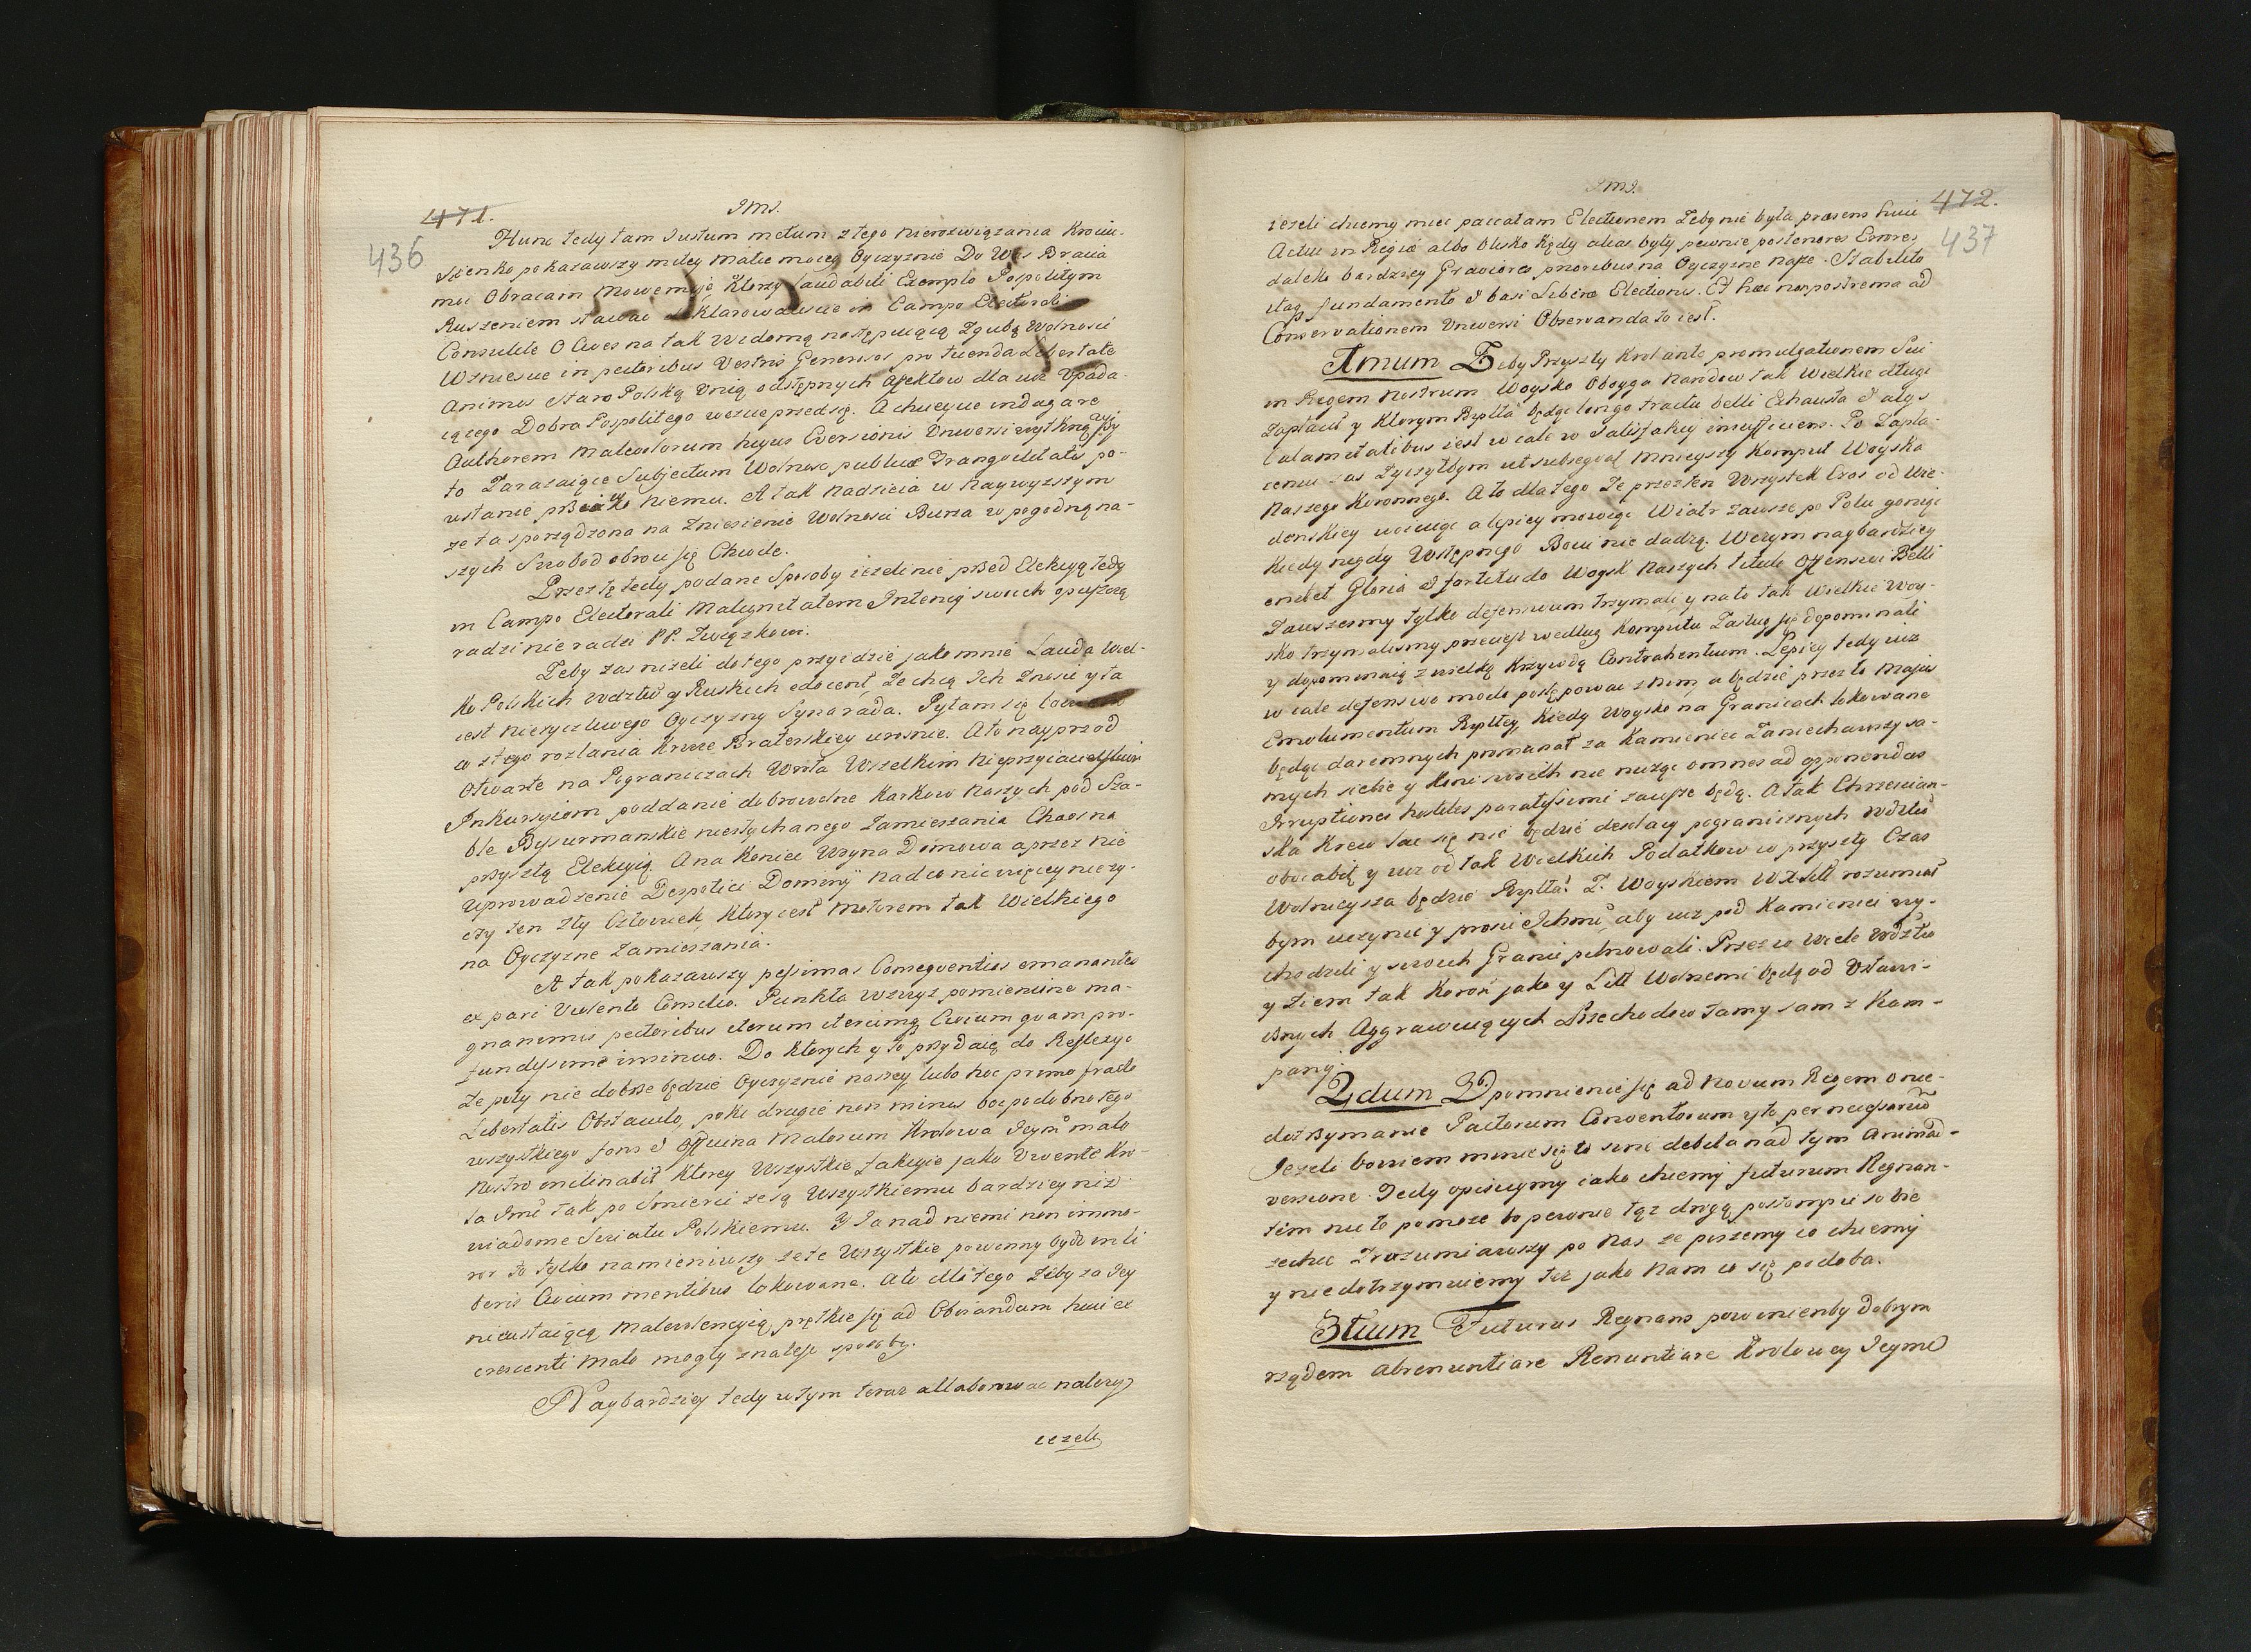 471.
436
JMJ.
Hunc tedy tam Justum metum z tego nierozwiązania Krociu-
sienko pokazawszy miłey Matce moiey Oyczyznie Do Was Bracia
moi Obracam Mowe moię, Ktorzy laudabili Exemplo Pospolitym
Ruszeniem stawac deklarowaliscie in Campo Electorali
Consulite O Cives na tak widomą następuiącą zgubę Wolnosci
Wzniescie in pectoribus Vestris Generosos pro tuenda Libertate
Animos staro Polską Unią odstępnych Afektow dla iuż Upada-
iącego Dobra Pospolitego wezcie przed się. A chceycie indagare
Authorem Malevolorum huius Eversionis Universi wytknąwszy
to Zarazaiące Subjectum Wolnosc, publicae Tranquilitatis po-
wstanie przeciwko niemu. A tak Nadzieia w Naywyzszym
ze ta sporządzona na Zniesienie Wolnosci Burza w pogodną na-
szych Swobod obroci się Chwile.
Przez tę tedy podane Sposoby iezeli nie przed Elekcyą tedy
in Campo Electorali Malignitatem Intencyi swoich opuszczą
radzi nie radzi PP. Związkowi.
Zeby zas nizeli do tego przyidzie jako mnie Lauda Wiel-
ko Polskich Wdztw y Ruskich edocent, Ze chcą Ich Znosic y ta
iest niezyczliwego Oyczyzny Syna rada. Pytam się bowiem
co z tego rozlania Krwie Braterskiey urosnie. A to nayprzod
Otwarte na Pograniczach Wrota Wszelkim Nieprzyiacielskim
Inkursyiom poddanie dobrowolne Karkow Naszych pod Sza-
ble Bysurmanskie niesłychanego Zamieszania Chaos na
przyszłą Elekcyią. A na Koniec Woyna Domowa a przez nie
Uprowadzenie Despotici Dominij nad co nic więcey nie zy-
czy ten zły Człowiek, Ktory iest Motorem tak Wielkiego
na Oyczyzne Zamieszania.
A tak pokazawszy pessimas Consequentias emanantes
ex pari Violento Consilio. Punkta Wzwyz pomienione ma-
gnanimis pectoribus iterum iterumq Civium quam pro-
fundissime iminuo. Do Ktorych y to przydaię do Reflexyi
Ze poty nie dobrze będzie Oyczyznie naszey lubo hoc primo fracto
Libertatis Obstaculo, poki drugie non minus boc podobno tego
wszystkiego fons & Officina Malorum Krolowa Jeym malo
Nostro inclinabit Ktorey Wszystkie fakcyie jako Vivente Kro-
la Jmc tak po Smierci ze są Wszystkiemu bardziey niz
wiadome Swiatu Polskiemu. Y Ja nad niemi non immo-
ror to tylko namieniwszy ze te Wszystkie powinny bydz in li
beris Civium mentibus lokowane. A to dla tego zeby za Jey
nieustaiącą Malevolencyią, prętkie się ad Obviandum huic ex
crescenti malo mogły znalesc sposoby.
Naybardziey tedy w tym teraz allaborowac nalezy
iezeli

JMJ.
472.
437
iezeli chcemy miec paccatam Electionem Zeby nie była praesens huic
Actui in Regia albo blisko Kędy alias były pewnie posteriores Errores
daleko bardziey Graviores prioribus na Oyczyzne nasze. Stabilito
itaq fundamento & basi Liberae Electionis. Et haec non postrema ad
Conservationem Universi Observanda to iest.
1mum Zeby Przyszły Krol ante promulgationem Sui
in Regem Nostrum Woysko Oboyga Narodow tak Wielkie długi
Zapłacił z Ktorym Rzplta będąc longo tractu belli Exhausta & aliys
Calamitatibus iest w cale w Satisfakcyi insufficiens. Po Zapła-
ceniu zas Zyczyłbym ut subsequat Mnieyszy Komput Woyska
Naszego Koronnego. A to dla tego Ze przez ten Wszystek Czas od Wie-
denskiey woiuiąc a lepiey mowiąc Wiatr zawsze po Polu goniąc
Kiedy nigdy Wstępnego Boiu nie dadzą. Wczym naybardziey
enitet Gloria & fortitudo Woysk Naszych titulo Offensivi Belli
Zawszesmy tylko defensivum trzymali y na to tak Wielkie Woy-
sko trzymalismy przecięz według Komputu Zasług się dopominali
y dopominaią z wielką Krzywdą Contrahentium. Lepiey tedy iuz
w cale defensivo modo postępowac z nim, a będzie przez to maius
Emolumentum Rzpltey, Kiedy Woysko na Granicach lokowane
będąc daremnych pomanat za Kamieniec Zaniechawszy sa-
mych siebie y Koni swoich nie nuząc omnes ad opponendas
Irruptiones hostiles paratissimi zawsze będą. A tak Chrzescian-
ska Krew lac się nie będzie desolacyi pogranicznych Wdztw
obviabit y iuz od tak Wielkich Podatkow w przyszły Czas
Wolnieysza będzie Rzplta. Z Woyskiem WXLitt rozumiał
bym uczynic y prosic Ichmc, aby iuz pod Kamieniec wy-
chodzili y swoich Granic pilnowali. Przez co Wiele Wdztw
y Ziem tak Koron jako y Litt Wolnemi będą od Ustawi-
cznych Aggrawuiących Przechodow Tamy sam z Kam-
panij.
2dum Upomnienie się ad Novum Regem o nie-
dotrzymanie Pactorum Conventorum y to per necessarium
Jezeli bowiem minie się to sine debita nad tym animad-
versione. Tedy opisuymy iako chcemy futurum Regnan-
tem nic to pomoze bo pewnie tąz drogą postompic sobie
zechce Zrozumiawszy po Nas ze piszemy co chcemy
y nie dotrzymuiemy tez jako Nam co się podoba.
3tium Futurus Regnans powinienby dobrym
rządem abrenuntiare Renuntiare Krolowey Jeymc